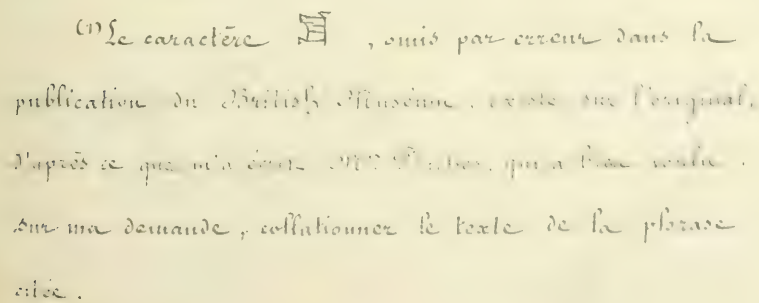 (1) Le caractère , omis par erreur dans la
publication du British Muséum, existe sur l'original,
d'après ce que m'a écrit Mr qui a bien voulu,
sur ma demande, collationner le texte de la phrase
citée.